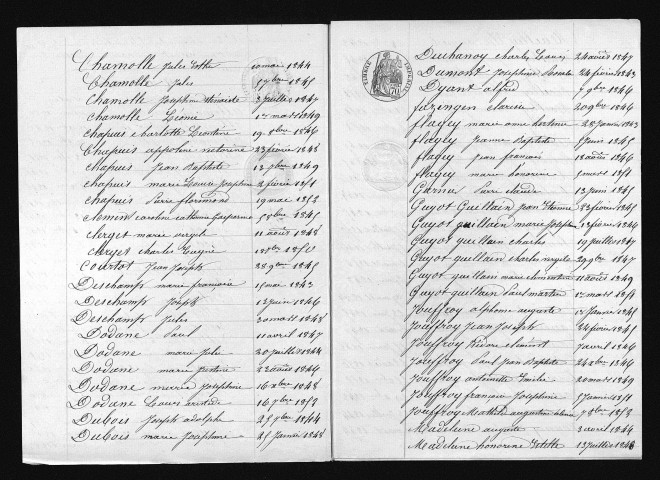 Chamolle Jules 10 mai 1844
Chamolle Jules 1845
Chamolle Josephine 3 Juillet 1847
Chamolle Leonie 1er mars 1849
Chapuis Charlotte Leontine 19 8bre 1846
Chapuis appoline victorine 23 février 1848
Chapuis Jean Baptiste 13 1849
Chapuis marie Louise Josephine 2 février 1851
Chapuis Pierre florimond 19 mai 1852
Clemen caroline catherine 1845
Clerget marie 11 août 1848
Clerget charles Eugène 1850
Courtot Jean Joseph 28 9bre 1845
Deschamp marie francoise 1843
Deschamp Joseph 12 juin 1846
Deschamp Jules 20 mars 1848
Dodane Paul 11 avril 1847
Dodane marie Julie 30 Juillet 1844
Dodane marie 22 août 1846
Dodane marie Josephine 16 xbre 1848
Dodane Louis aristide 16 1852
Dubois Joseph adolphe 25 1844
Dubois marie Josephine 25 Janvier 1848
Duchanoy charles Louis 24 août 1847
Dumont Josephine 24 février 1843
Dyant alfred 7 9bre 1846
20 9bre 1846
flagey marie anne hortense 28 Janvier 1843
flagey Jeanne Baptiste 1845
flagey jean françois 18 août 1846
flagey marie honorine 5 mars 1851
Garnu Pierre claude 13 juin 1845
Guyot Guillain jean Etienne 23 février 1845
Guyot guillain marie Josephine 13 février 1846
Guyot guillain charles 19 Juillet 1847
Guyot guillain charles 29 9bre 1847
Guyot guillain marie clementine 11 août 1849
Guyot guillain Paul martin 1er mars 1851
Jouffroy alphonse auguste Janvier 1845
Jouffroy Jean Joseph 24 février 1845
Jouffroy Pierre clement 7 avril 1846
Jouffroy Paul Jean Baptiste 24 xbre 1846
Jouffroy antoinette Emilie 20 mars 1849
Jouffroy francois Josephine Janvier 1851
Jouffroy Mathilde augustine 7 9bre 1852
Madeleine auguste 3 avril 1844
Madeleine honorine 13 Juillet 1846